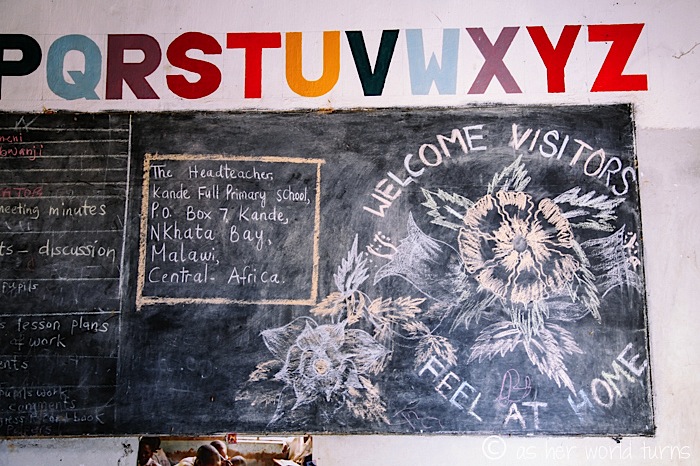 PQRSTUVWXYZ
meeting minutes
discussion
pupils
lesson plans
& work
The Headteacher,
Kande Full Primary School,
P.O. Box 7 Kande,
NKhata Bay,
Malawi,
Central - Africa.
WELCOME VISITORS
FEEL AT HOME
comments
book
© as her world turns